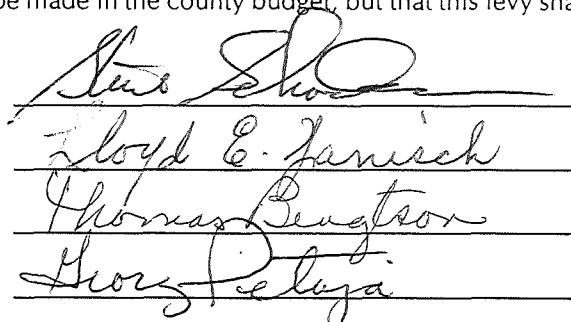 be made in the county budget, but that this levy sha
Steve
Lloyd E. Janisch
Thomas Bengtson